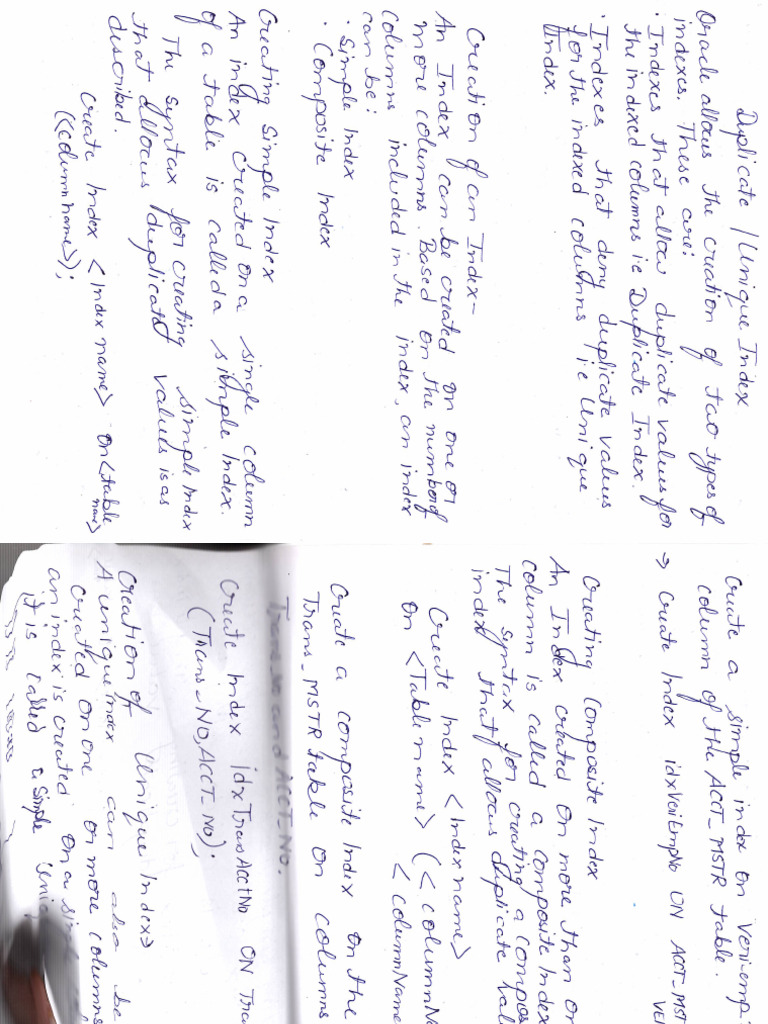 Duplicate / Unique Index
Oracle allows the creation of two types of
indexes. These are:
· Indexes that allow duplicate values for
the indexed columns i.e Duplicate Index.
· Indexes that deny duplicate values
for the indexed columns i.e Unique
Index.
Creation of an Index-
An Index can be created on one or
more columns. Based on the number of
columns included in the index, an index
can be:
· Simple Index
· Composite Index
Creating Simple Index
An index created on a single column
of a table is called a simple Index.
The syntax for creating simple Index
that allows duplicate values is as
described.
Create Index <Index name> on <table
name>
(<column name>);
Create a simple index on veri-emp-
column of the ACCT_MSTR table.
→ Create Index idxVeriEmpNo ON ACCT_MST
VE
Creating Composite Index
An Index created on more than on
column is called a composite Index
The syntax for creating a compos
index that allows duplicate
Create Index <Index name>
On <Table name> (<columnN
<columnName
Create a composite Index on the
Trans_MSTR table on columns
Trans_no and ACCT_No.
Create Index idxTransAcctNo ON Tra
(Trans_No, ACCT_No);
Creation of Unique Index⇒
A unique index can also be
created on one or more columns
an index is created on a
it is called a simple